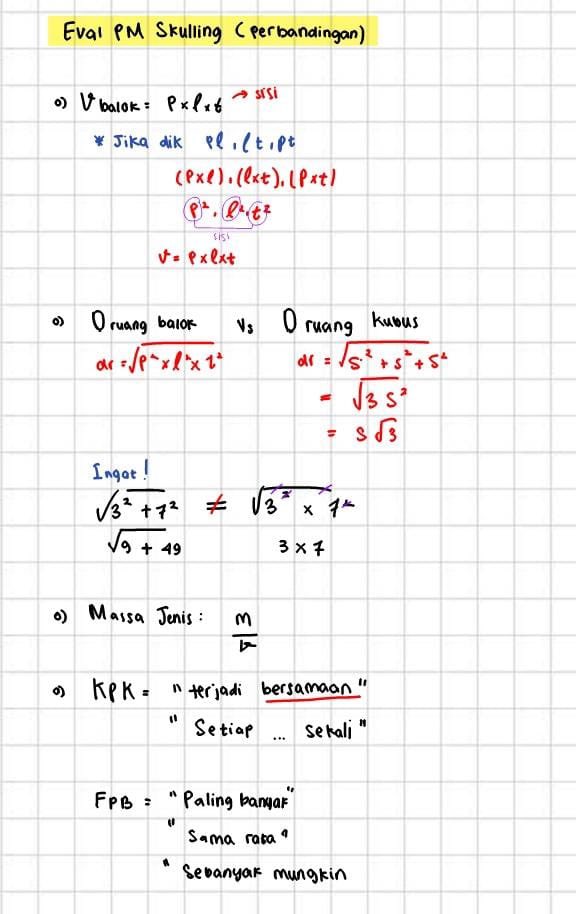 Eval PM Skulling (perbandingan)
o) V balok = p x l x t → sisi
* Jika dik pl, lt, pt
(pxl), (lxt), (pxt)
p², l², t²
sisi
v = p x l x t
o) D ruang balok vs D ruang kubus
dr = √p² x l² x t² dr = √s² + s² + s²
= √3 s²
= s√3
Ingat!
√3² + 7² ≠ √3² x 7²
√9 + 49 3 x 7
o) Massa Jenis : m
v
o) KPK = "terjadi bersamaan"
"Setiap ... sekali"
FPB = "Paling banyak"
"Sama rata"
"Sebanyak mungkin